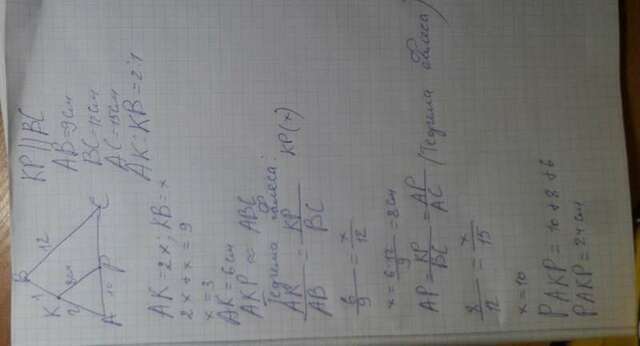 KP || BC
AB=9см
BC=12см
AC=15см
AK:KB=2:1
B
12
K
1
2
8см
A
10
P
C
AK=2x, KB=x
2x+x=9
x=3
AK=6см
AKP ∞ ABC
Теорема Фалеса:
AK/AB = KP/BC KP(x)
6/9 = x/12
x = 6·12/9 = 8см
AP = KP/BC = AP/AC (Теорема Фалеса)
8/12 = x/15
x=10
PAKP=10+8+6
PAKP=24см